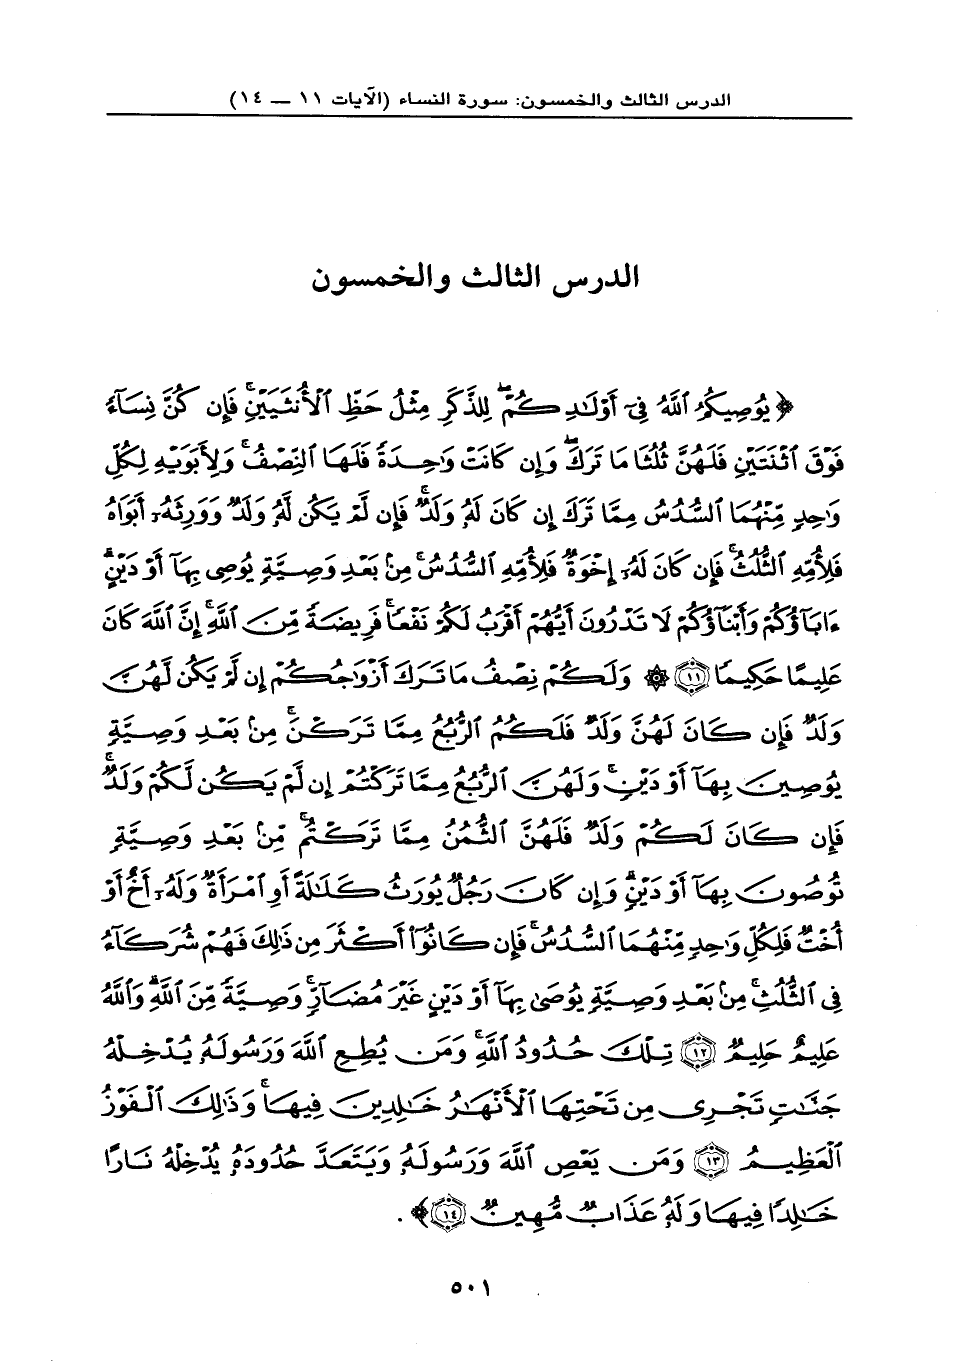 الدرس الثالث والخمسون: سورة النساء (الآيات ١١ — ١٤)
الدرس الثالث والخمسون
﴿يُوصِيكُمُ ٱللَّهُ فِىٓ أَوْلَٰدِكُمْ ۖ لِلذَّكَرِ مِثْلُ حَظِّ ٱلْأُنثَيَيْنِ ۚ فَإِن كُنَّ نِسَآءً
فَوْقَ ٱثْنَتَيْنِ فَلَهُنَّ ثُلُثَا مَا تَرَكَ ۖ وَإِن كَانَتْ وَٰحِدَةً فَلَهَا ٱلنِّصْفُ ۚ وَلِأَبَوَيْهِ لِكُلِّ
وَٰحِدٍ مِّنْهُمَا ٱلسُّدُسُ مِمَّا تَرَكَ إِن كَانَ لَهُۥ وَلَدٌ ۚ فَإِن لَّمْ يَكُن لَّهُۥ وَلَدٌ وَوَرِثَهُۥٓ أَبَوَاهُ
فَلِأُمِّهِ ٱلثُّلُثُ ۚ فَإِن كَانَ لَهُۥٓ إِخْوَةٌ فَلِأُمِّهِ ٱلسُّدُسُ ۚ مِنۢ بَعْدِ وَصِيَّةٍ يُوصِى بِهَآ أَوْ دَيْنٍ ۗ
ءَابَآؤُكُمْ وَأَبْنَآؤُكُمْ لَا تَدْرُونَ أَيُّهُمْ أَقْرَبُ لَكُمْ نَفْعًا ۚ فَرِيضَةً مِّنَ ٱللَّهِ ۗ إِنَّ ٱللَّهَ كَانَ
عَلِيمًا حَكِيمًا ۝١١ ۞ وَلَكُمْ نِصْفُ مَا تَرَكَ أَزْوَٰجُكُمْ إِن لَّمْ يَكُن لَّهُنَّ
وَلَدٌ ۚ فَإِن كَانَ لَهُنَّ وَلَدٌ فَلَكُمُ ٱلرُّبُعُ مِمَّا تَرَكْنَ ۚ مِنۢ بَعْدِ وَصِيَّةٍ
يُوصِينَ بِهَآ أَوْ دَيْنٍ ۚ وَلَهُنَّ ٱلرُّبُعُ مِمَّا تَرَكْتُمْ إِن لَّمْ يَكُن لَّكُمْ وَلَدٌ ۚ
فَإِن كَانَ لَكُمْ وَلَدٌ فَلَهُنَّ ٱلثُّمُنُ مِمَّا تَرَكْتُم ۚ مِّنۢ بَعْدِ وَصِيَّةٍ
تُوصُونَ بِهَآ أَوْ دَيْنٍ ۗ وَإِن كَانَ رَجُلٌ يُورَثُ كَلَٰلَةً أَوِ ٱمْرَأَةٌ وَلَهُۥٓ أَخٌ أَوْ
أُخْتٌ فَلِكُلِّ وَٰحِدٍ مِّنْهُمَا ٱلسُّدُسُ ۚ فَإِن كَانُوٓا۟ أَكْثَرَ مِن ذَٰلِكَ فَهُمْ شُرَكَآءُ
فِى ٱلثُّلُثِ ۚ مِنۢ بَعْدِ وَصِيَّةٍ يُوصَىٰ بِهَآ أَوْ دَيْنٍ غَيْرَ مُضَآرٍّ ۚ وَصِيَّةً مِّنَ ٱللَّهِ ۗ وَٱللَّهُ
عَلِيمٌ حَلِيمٌ ۝١٢ تِلْكَ حُدُودُ ٱللَّهِ ۚ وَمَن يُطِعِ ٱللَّهَ وَرَسُولَهُۥ يُدْخِلْهُ
جَنَّٰتٍ تَجْرِى مِن تَحْتِهَا ٱلْأَنْهَٰرُ خَٰلِدِينَ فِيهَا ۚ وَذَٰلِكَ ٱلْفَوْزُ
ٱلْعَظِيمُ ۝١٣ وَمَن يَعْصِ ٱللَّهَ وَرَسُولَهُۥ وَيَتَعَدَّ حُدُودَهُۥ يُدْخِلْهُ نَارًا
خَٰلِدًا فِيهَا وَلَهُۥ عَذَابٌ مُّهِينٌ ۝١٤﴾.
٥٠١